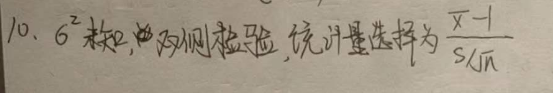 10、σ²未知，双侧检验，统计量选择为 (x̄-1)/(s/√n)